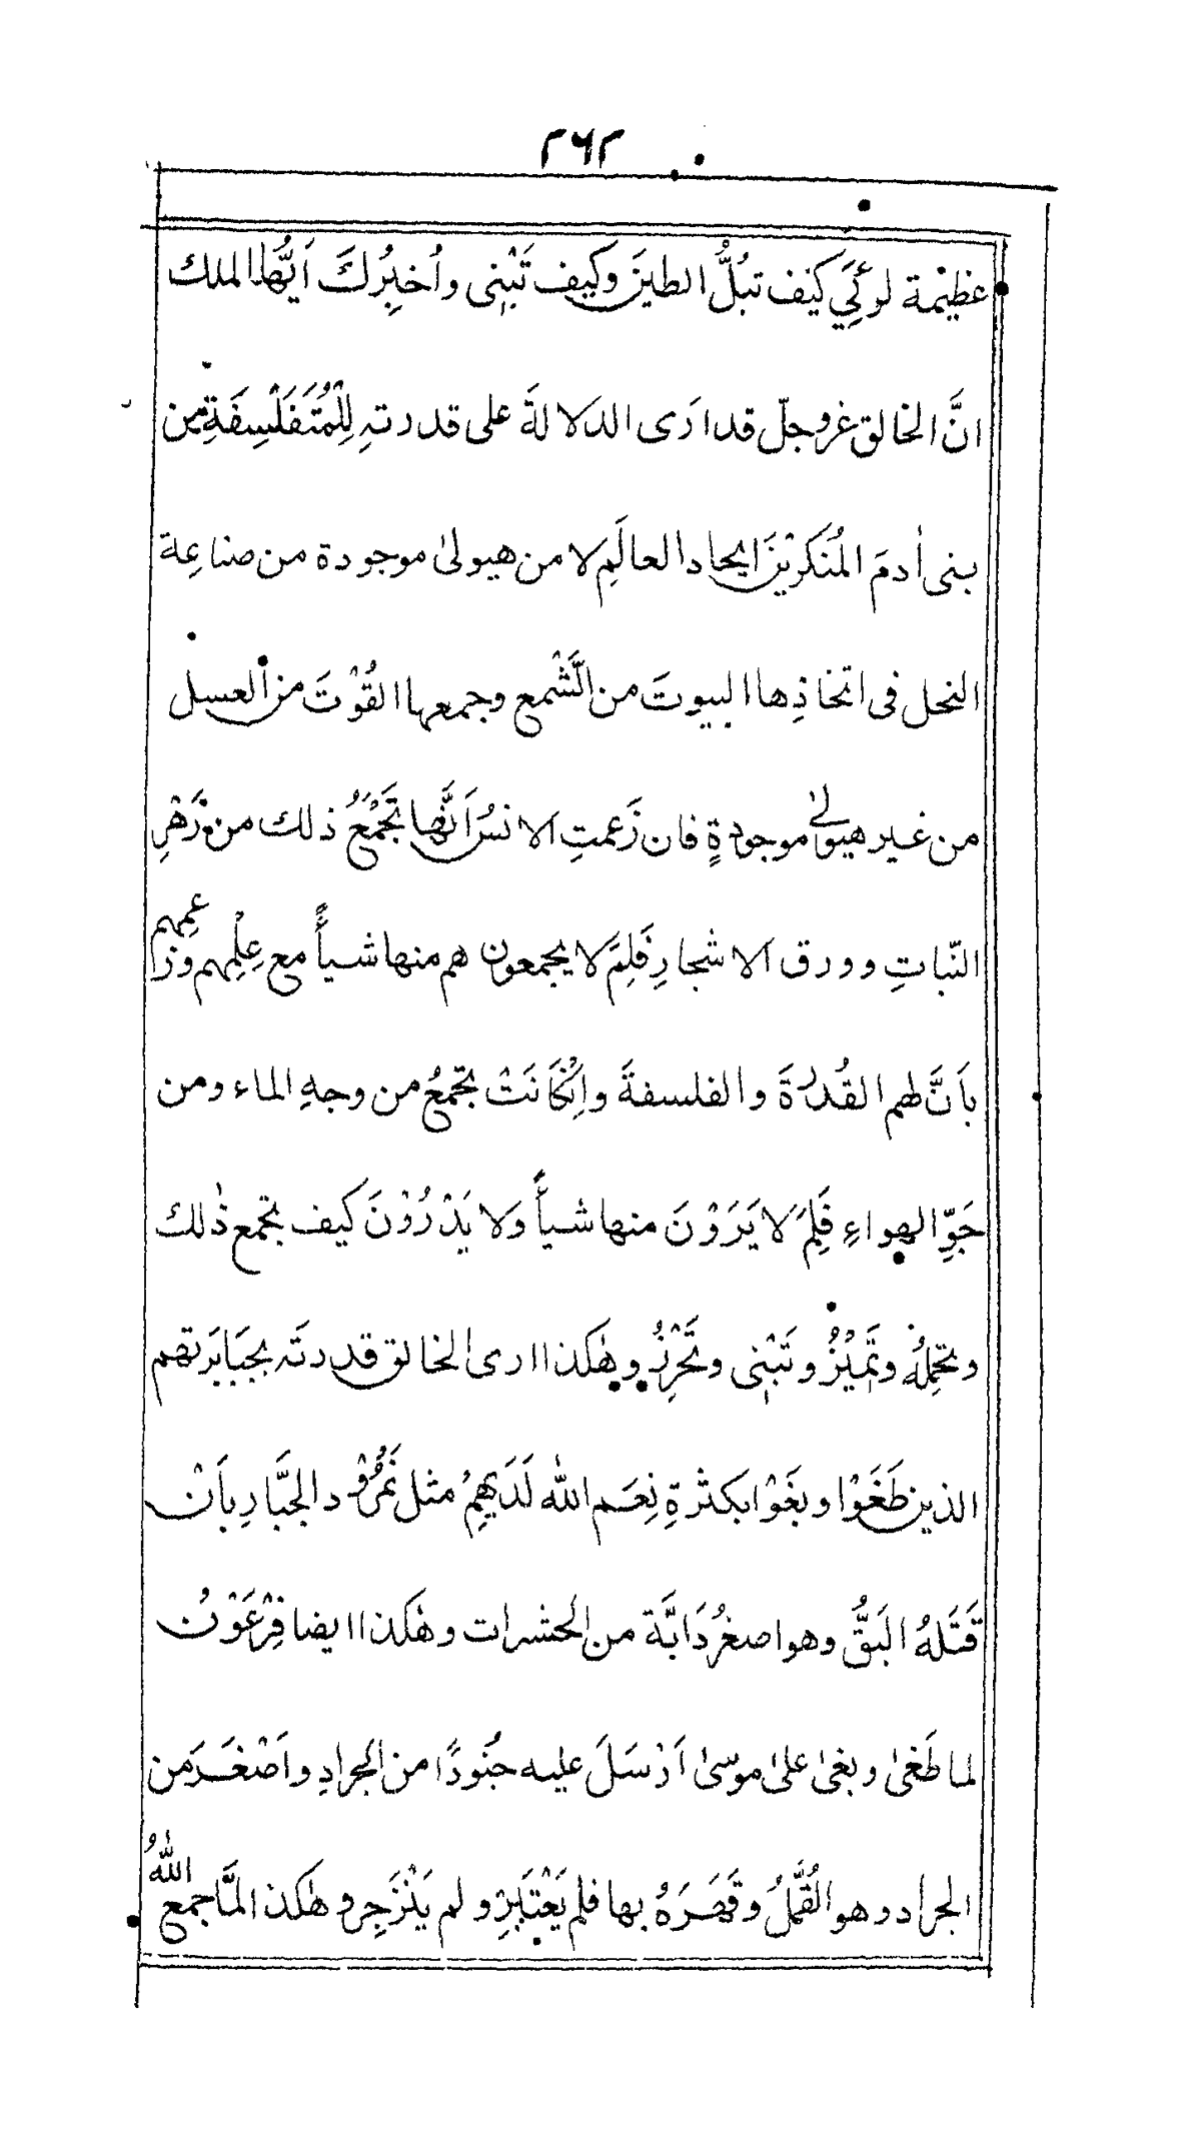 ۲۶۲
عظيمة لو رُئِيَ كيف تبُلُّ الطينَ وكيف تَبْنِى واُخبِرُكَ اَيُّها الملك
انَّ الخالق عزوجلّ قد ارَى الدلالةَ على قدرتہِ لِلْمُتَفَلْسِفَةِ من
بنى اٰدمَ المُنكرِيْنَ ايجاد العالَمِ لا من هيولىٰ موجودة من صناعِة
النحل فى اتخاذِها البيوتَ من الَّشْمع وجمعها القُوْتَ من العسل
من غير هيولٰى موجودةٍ فان زَعمتِ الانسُ اَنَّها تَجْمَعُ ذلك من زَهْرِ
النّباتِ وورق الاشجارِ فَلِمَ لا يجمعون هم منها شيأً مع عِلْمِهم وزاعمِهم
بِاَنَّ لهم القُدْرَةَ والفلسفةَ وإِنْ كَانَتْ تجمَعُ من وجهِ الماء ومن
جَوِّ الهواءِ فَلِمَ لا يَرَوْنَ منها شيأً ولا يَدْرُوْنَ كيف تجمع ذٰلك
وتحمِلُهُ وتَمِيْزُ وتَبْنِى وتَحْرِزُ وهٰكذا ارى الخالق قدرتَہ بجَبَابَرتهم
الذين طَغَوْا وبغَوْا بكثرةِ نِعَم الله لَدَيهِمْ مثل نَمْرُوْد الجبَّارِ بِاَنْ
قَتَلَهُ البَقُّ وهو اصغرُ دَابَّة من الحشرات وهٰكذا ايضا فِرْعَوْن
لما طَغىٰ وبغىٰ علىٰ موسىٰ اَرْسَلَ عليه جُنودًا من الجرادِ واَصْغَرَ من
الجراد وهو القُمَّلُ وقَهَرَهُ بها فلم يَعْتَبِرْ ولم يَنْزَجِر وهٰكذا لمَّا جمع اللّٰهُ